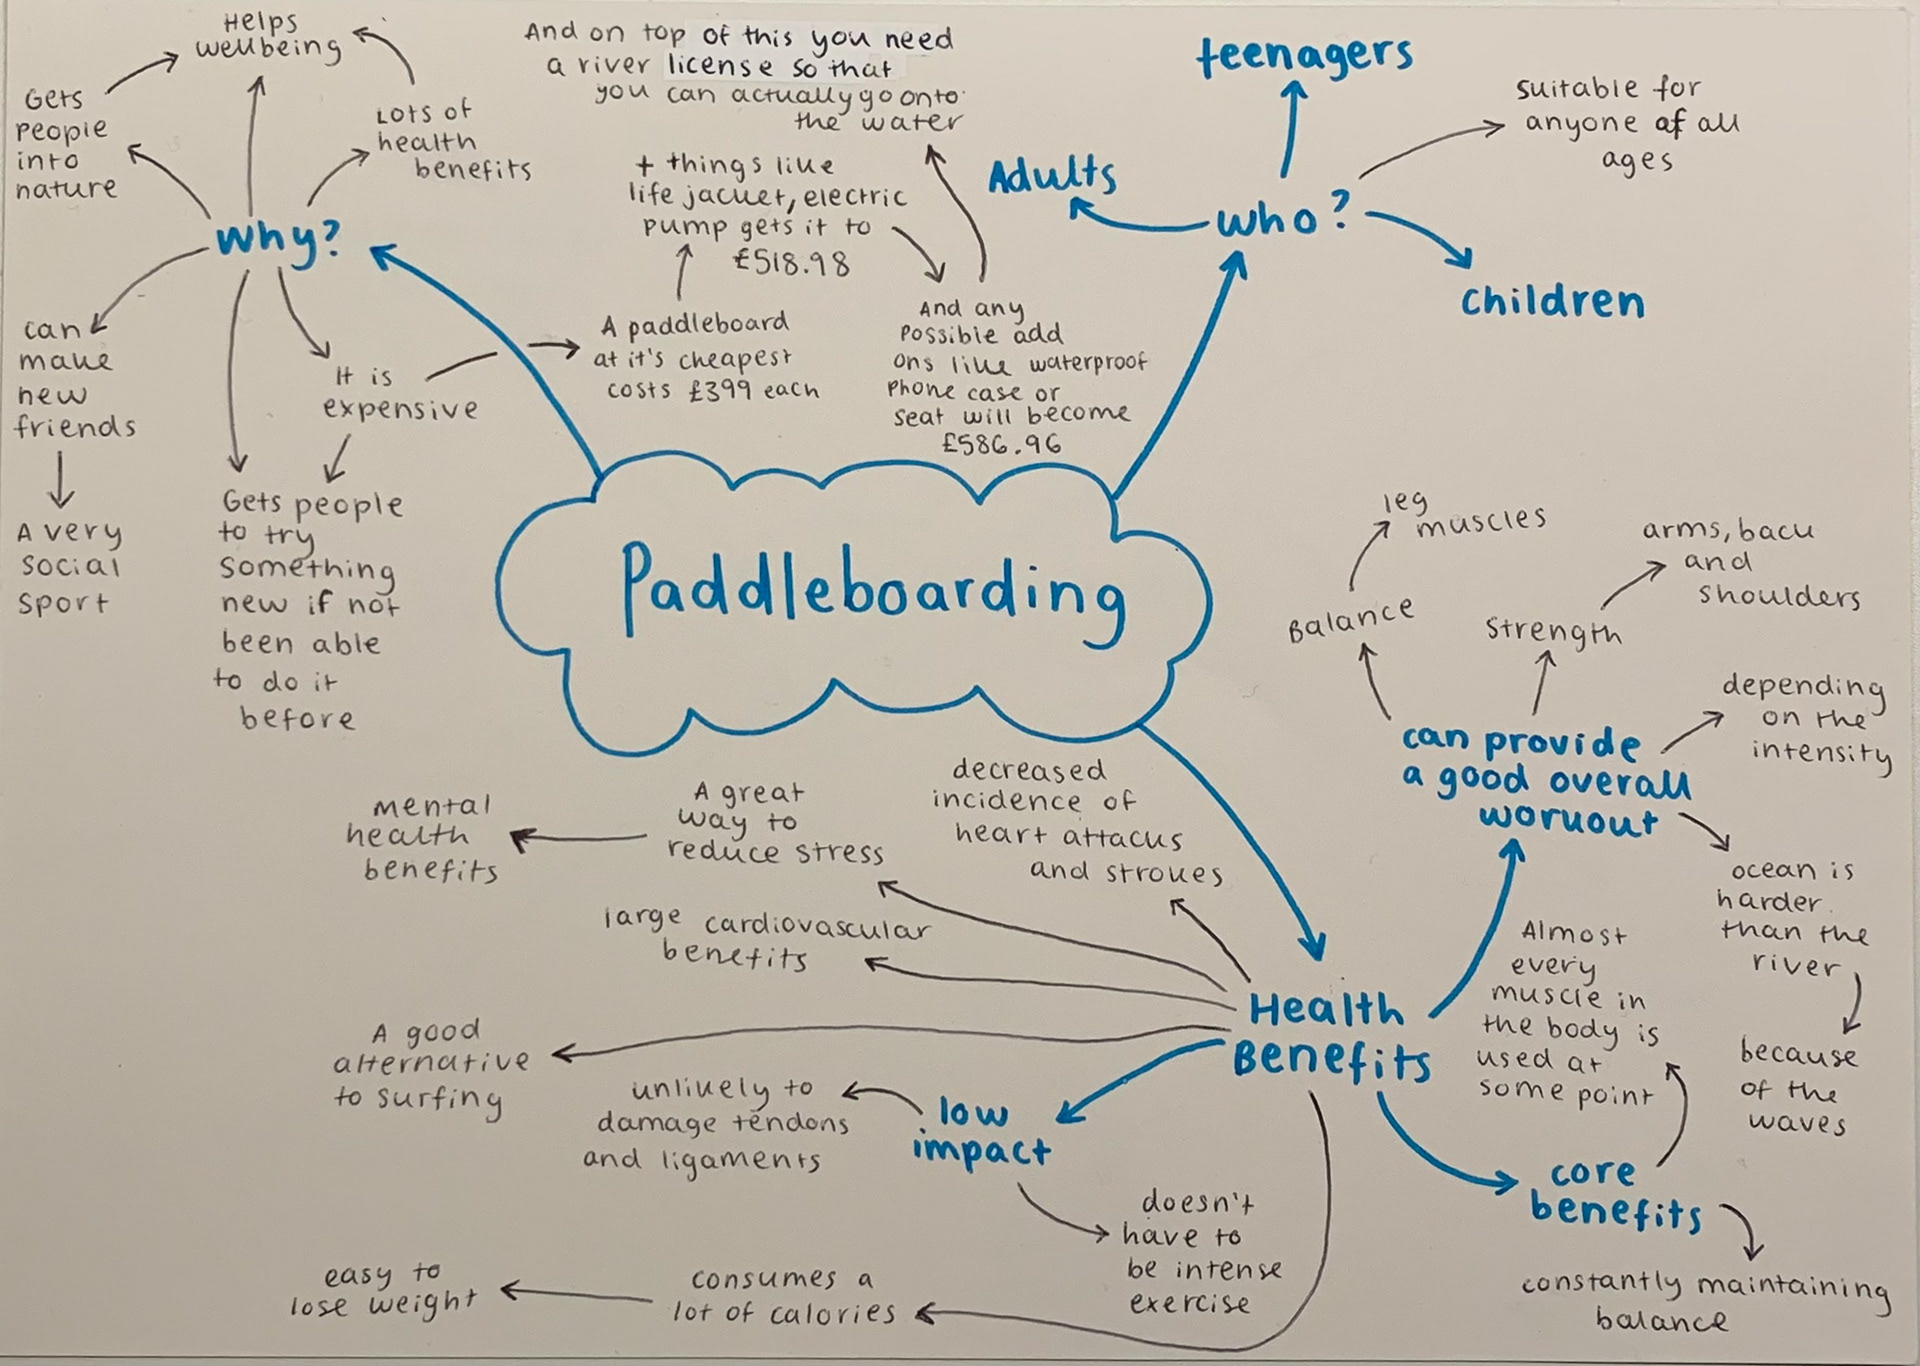 Helps
wellbeing
Gets
people
into
nature
Lots of
health
benefits
Why?
can
make
new
friends
A very
social
sport
It is
expensive
Gets people
to try
something
new if not
been able
to do it
before
And on top of this you need
a river license so that
you can actually go onto
the water
+ things like
life jacket, electric
pump gets it to
£518.98
A paddleboard
at it's cheapest
costs £399 each
And any
possible add
ons like waterproof
phone case or
seat will become
£586.96
teenagers
Adults
who?
suitable for
anyone of all
ages
children
Paddleboarding
leg
muscles
Balance
arms, back
and
shoulders
strength
depending
on the
intensity
can provide
a good overall
workout
ocean is
harder
than the
river
because
of the
waves
mental
health
benefits
A great
way to
reduce stress
decreased
incidence of
heart attacks
and strokes
large cardiovascular
benefits
Health
Benefits
A good
alternative
to surfing
unlikely to
damage tendons
and ligaments
low
impact
doesn't
have to
be intense
exercise
easy to
lose weight
consumes a
lot of calories
Almost
every
muscle in
the body is
used at
some point
core
benefits
constantly maintaining
balance